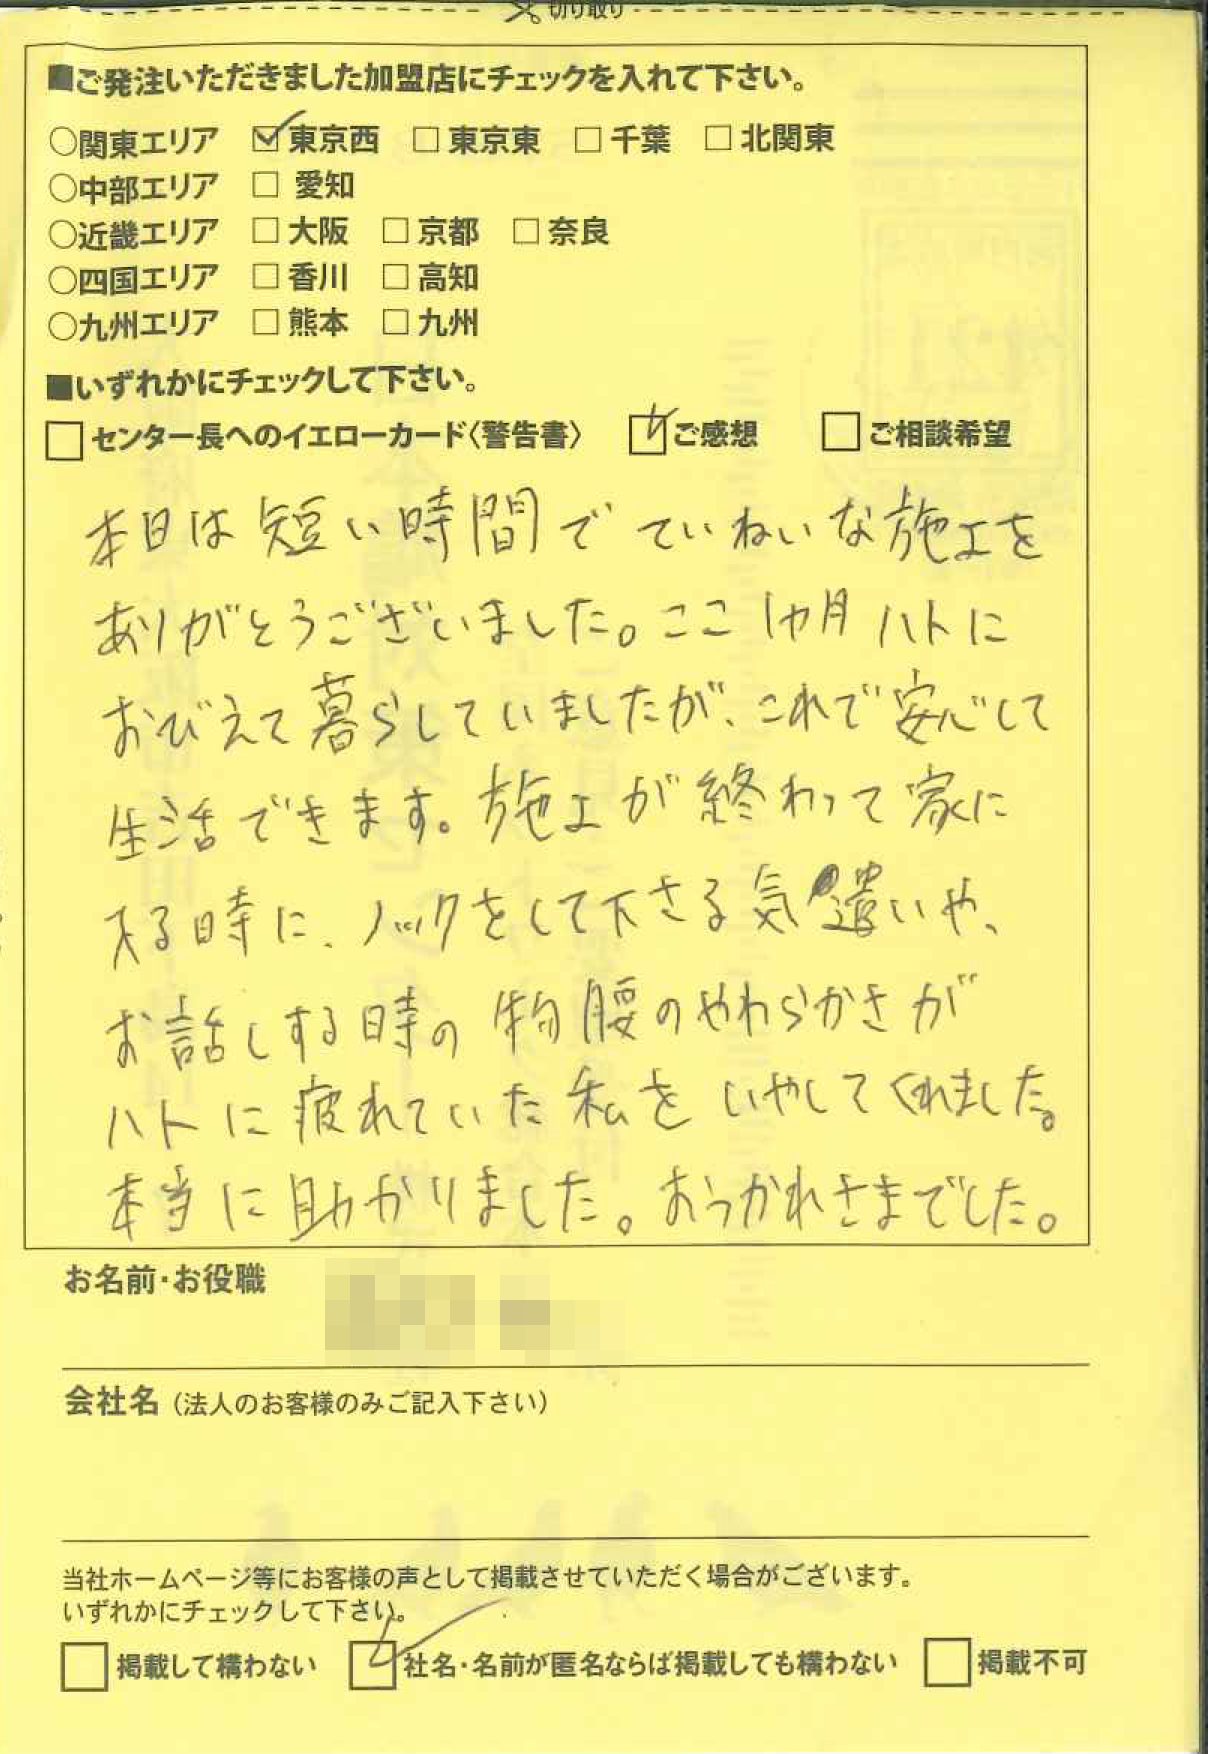 切り取り
■ご発注いただきました加盟店にチェックを入れて下さい。
○関東エリア ☑東京西 □東京東 □千葉 □北関東
○中部エリア □愛知
○近畿エリア □大阪 □京都 □奈良
○四国エリア □香川 □高知
○九州エリア □熊本 □九州
■いずれかにチェックして下さい。
□センター長へのイエローカード〈警告書〉 ☑ご感想 □ご相談希望
本日は短い時間でていねいな施工を
ありがとうございました。ここ1ヶ月ハトに
おびえて暮らしていましたが、これで安心して
生活できます。施工が終わって家に
入る時に、ノックをして下さる気遣いや、
お話しする時の物腰のやわらかさが
ハトに疲れていた私をいやしてくれました。
本当に助かりました。おつかれさまでした。
お名前・お役職
会社名（法人のお客様のみご記入下さい）
当社ホームページ等にお客様の声として掲載させていただく場合がございます。
いずれかにチェックして下さい。
□掲載して構わない ☑社名・名前が匿名ならば掲載しても構わない □掲載不可